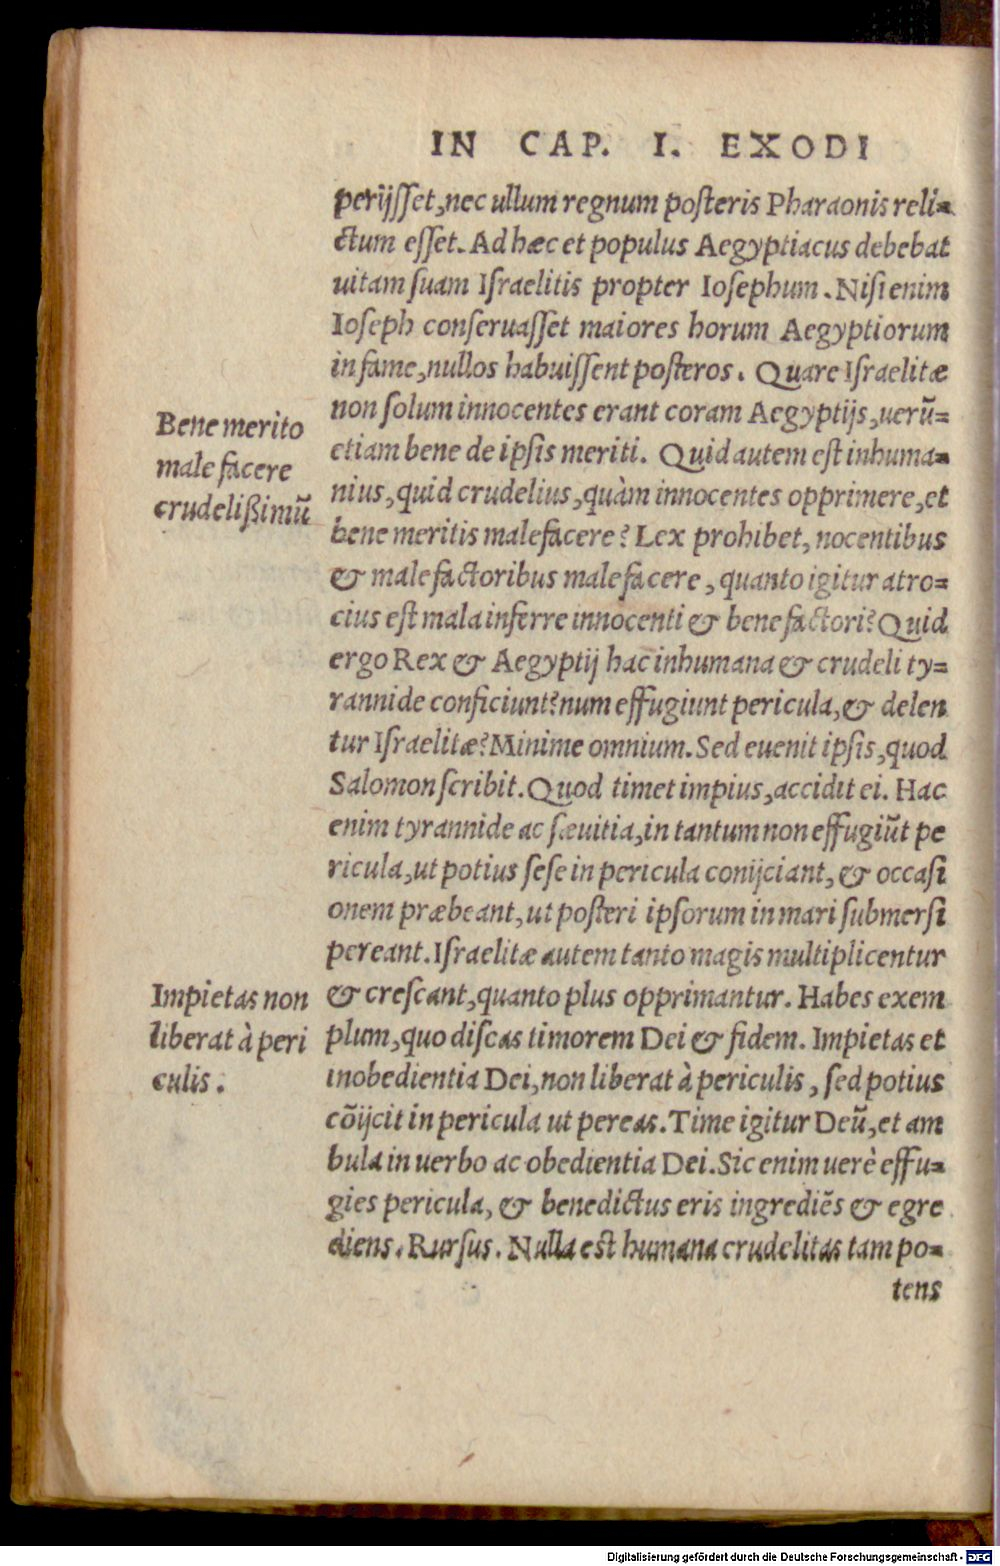 IN CAP. I. EXODI
perijſſet, nec ullum regnum poſteris Pharaonis reli=
ctum eſſet. Ad hæc et populus Aegyptiacus debebat
uitam ſuam Iſraelitis propter Ioſephum. Niſi enim
Ioſeph conſeruaſſet maiores horum Aegyptiorum
in fame, nullos habuiſſent poſteros. Quare Iſraelitæ
non ſolum innocentes erant coram Aegyptijs, uerũ=
etiam bene de ipſis meriti. Quid autem eſt inhuma=
nius, quid crudelius, quàm innocentes opprimere, et
bene meritis malefacere? Lex prohibet, nocentibus
& malefactoribus malefacere, quanto igitur atro=
cius eſt mala inferre innocenti & benefactori? Quid
ergo Rex & Aegyptij hac inhumana & crudeli ty=
rannide conficiunt? num effugiunt pericula, & delen
tur Iſraelitæ? Minime omnium. Sed euenit ipſis, quod
Salomon ſcribit. Quod timet impius, accidit ei. Hac
enim tyrannide ac ſæuitia, in tantum non effugiũt pe
ricula, ut potius ſeſe in pericula conijciant, & occaſi
onem præbeant, ut poſteri ipſorum in mari ſubmerſi
pereant. Iſraelitæ autem tanto magis multiplicentur
& creſcant, quanto plus opprimantur. Habes exem
plum, quo diſcas timorem Dei & fidem. Impietas et
inobedientia Dei, non liberat à periculis, ſed potius
cõijcit in pericula ut pereas. Time igitur Deũ, et am
bula in uerbo ac obedientia Dei. Sic enim uerè effu=
gies pericula, & benedictus eris ingrediẽs & egre
diens. Rurſus. Nulla est humana crudelitas tam po=
tens
Bene merito
male facere
crudelißimũ
Impietas non
liberat à peri
culis.
Digitalisierung gefördert durch die Deutsche Forschungsgemeinschaft - DFG